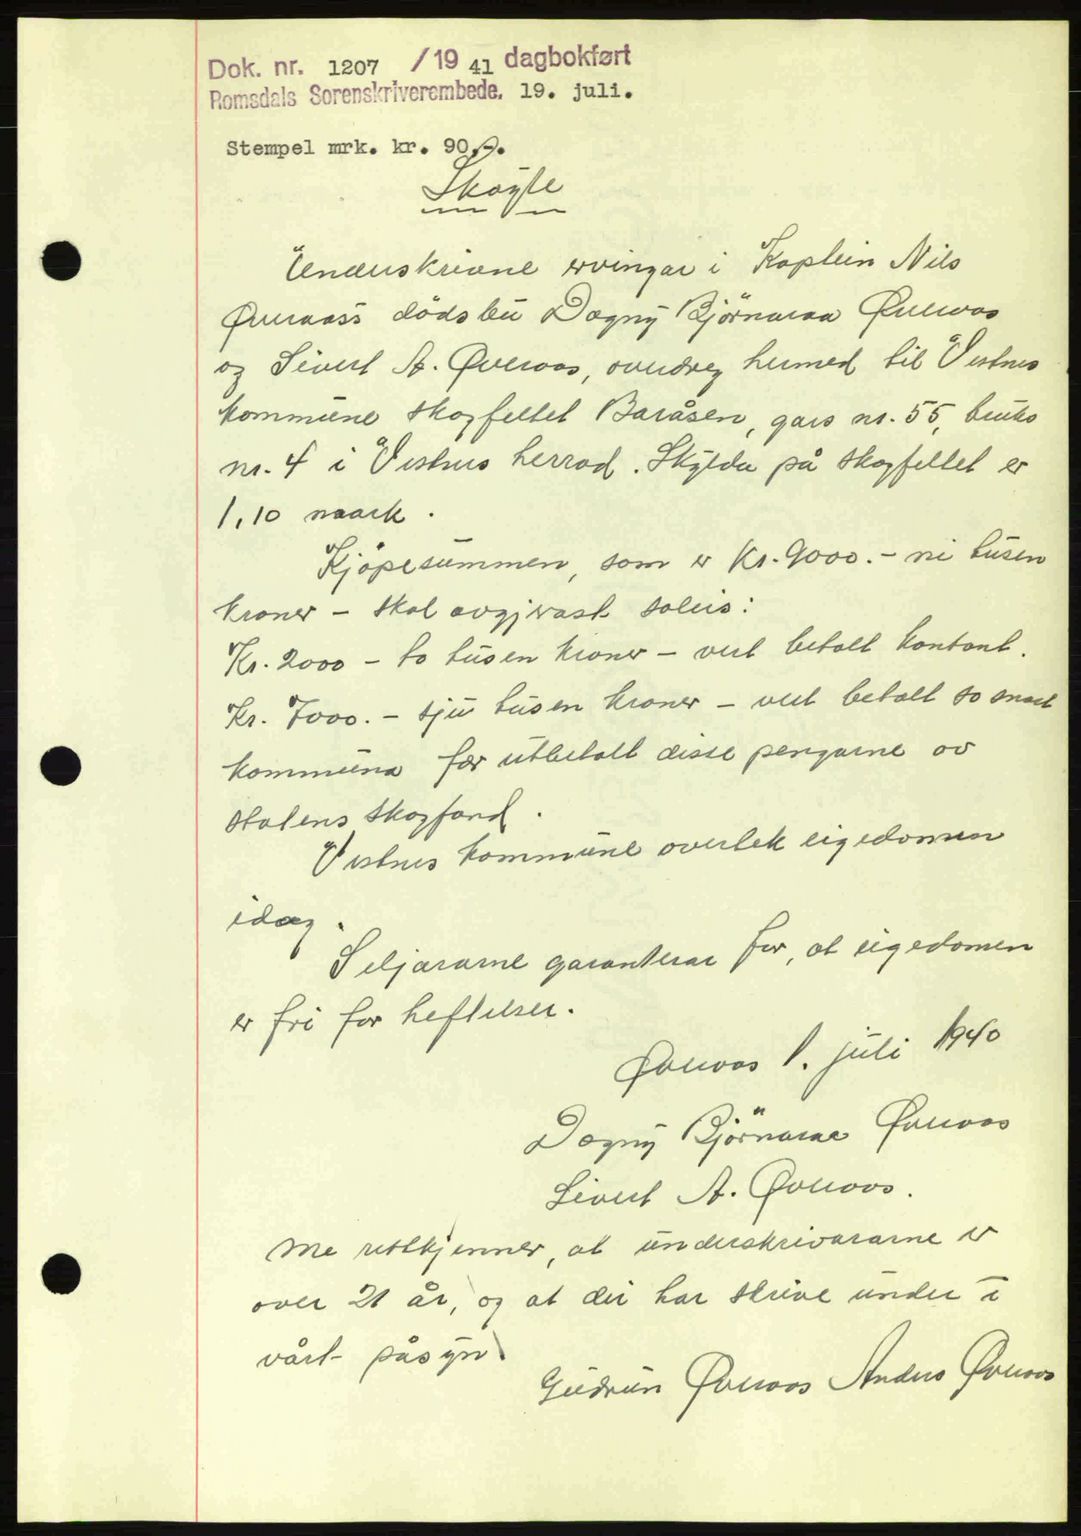 Dok. nr. 1207 /19 41 dagbokført
Romsdals Sorenskriverembede. 19. juli.
Stempel mrk. kr. 90,-.
Skøyte
Underskrivne ervingar i Kaptein Nils
Øveraas's dödsbu Dagny Björnaraa Øveraas
og Sivert A. Øveraas, overdreg hermed til Vestnes
kommune skogfeltet Baråsen, gars nr. 55, bruks
nr. 4 i Vestnes herrad. Skylda på skogfeltet er
1,10 mark.
Kjöpesummen, som er Kr. 9000.- ni tusen
kroner - skal avgjerast soleis:
Kr. 2000 - to tusen kroner - vert betalt kontant.
Kr. 7000.- sju tusen kroner - vert betalt so snart
kommuna får utbetalt disse pengarne av
statens skogfond.
Vestnes kommune overtek eigedomen
idag.
Seljararne garanterar for, at eigedomen
er fri for heftelser.
Øveraas 1. juli 1940
Dagny Björnaraa Øveraas
Sivert A. Øveraas.
Me vitkjenner, at underskrivararne er
over 21 år, og at dei har skrive under i
vårt påsyn.
Gudrun Øveraas Anders Øveraas